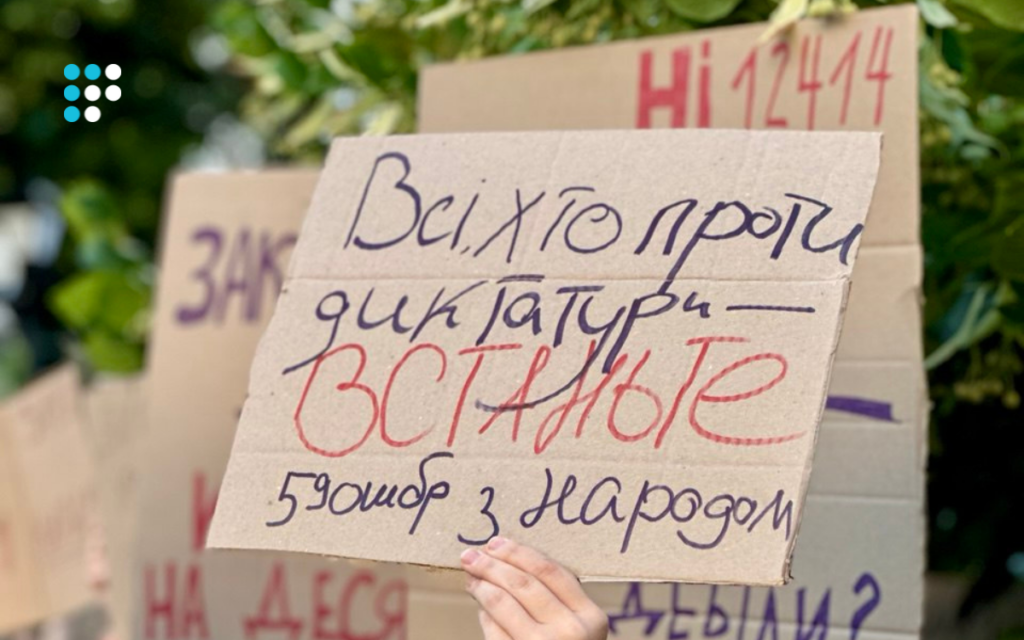 Ні 12414
Всі, хто проти
диктатури —
ВСТАНЬТЕ
59ошбр з народом
ЗАК
НА ДЕСЯ
ДЕБІЛИ?